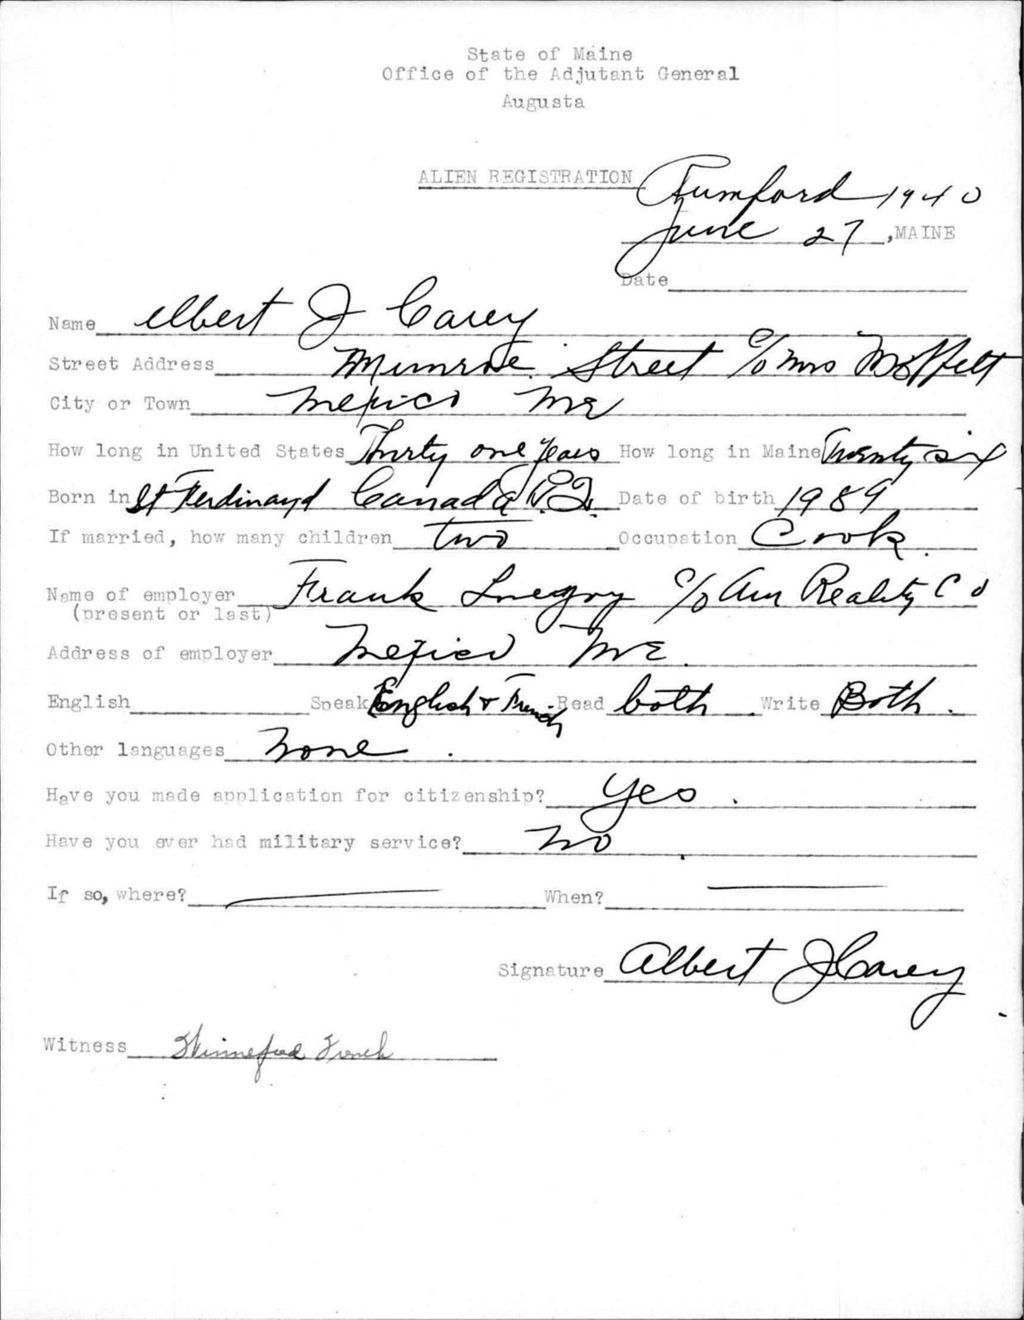 State of Maine
Office of the Adjutant General
Augusta
ALIEN REGISTRATION Rumford 1940
June 27 ,MAINE
Date
Name Albert J Carey
Street Address Munroe Street c/o Mrs Moffett
City or Town Mexico Me
How long in United States Thirty one years How long in Maine Twenty six
Born in St Ferdinand Canada P.Q. Date of birth 1989
If married, how many children two Occupation Cook.
Name of employer Frank c/o Am Reality Co
(present or last)
Address of employer Mexico Me.
English Speak English & French Read both Write Both.
Other languages None.
Have you made application for citizenship? Yes.
Have you ever had military service? No
If so, where? When?
Signature Albert J Carey
Witness French